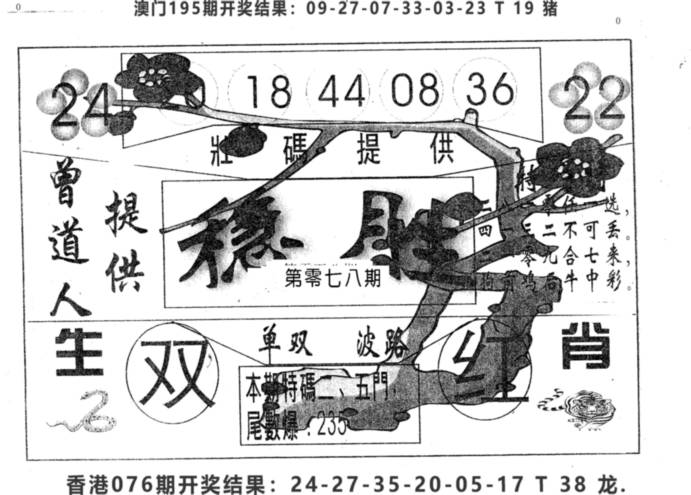 澳门195期开奖结果：09-27-07-33-03-23 T 19 猪
0
0
24 18 44 08 36 22
壯碼提供
曾道人
提供
穩胜
第零七八期
选，
四 二不可丢。
零九合七来，
后牛中彩。
单双 波路
生 双 红 肖
本期特碼二、五門，
尾數爆：235
香港076期开奖结果：24-27-35-20-05-17 T 38 龙.